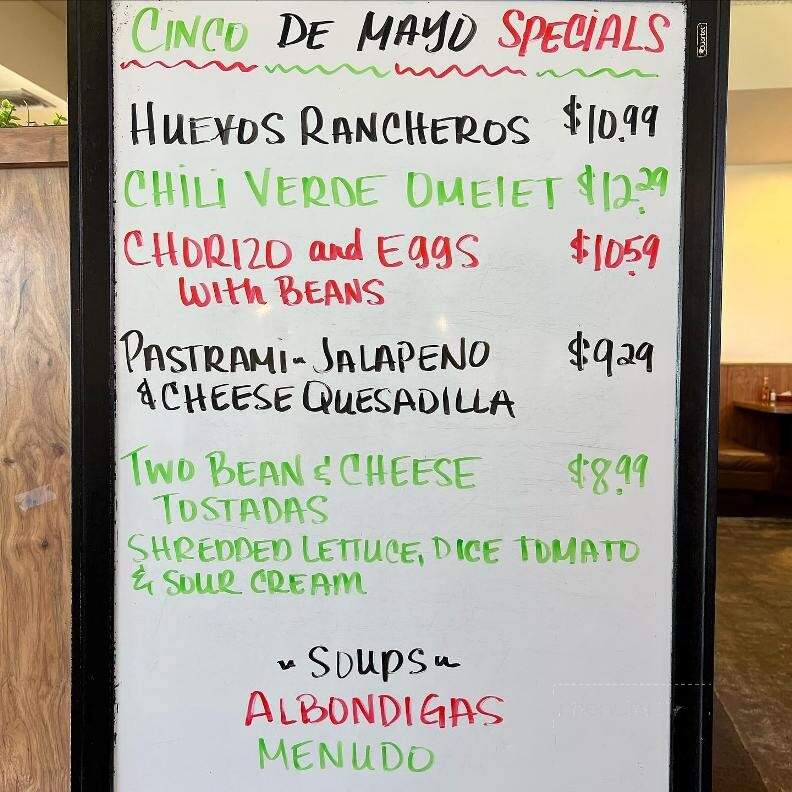 CINCO DE MAYO SPECIALS
HUEVOS RANCHEROS $10.99
CHILI VERDE OMELET $12.29
CHORIZO and EGGS $10.59
WITH BEANS
PASTRAMI - JALAPENO $9.29
& CHEESE QUESADILLA
TWO BEAN & CHEESE $8.99
TOSTADAS
SHREDDED LETTUCE, DICE TOMATO
& SOUR CREAM
~ SOUPS ~
ALBONDIGAS
MENUDO